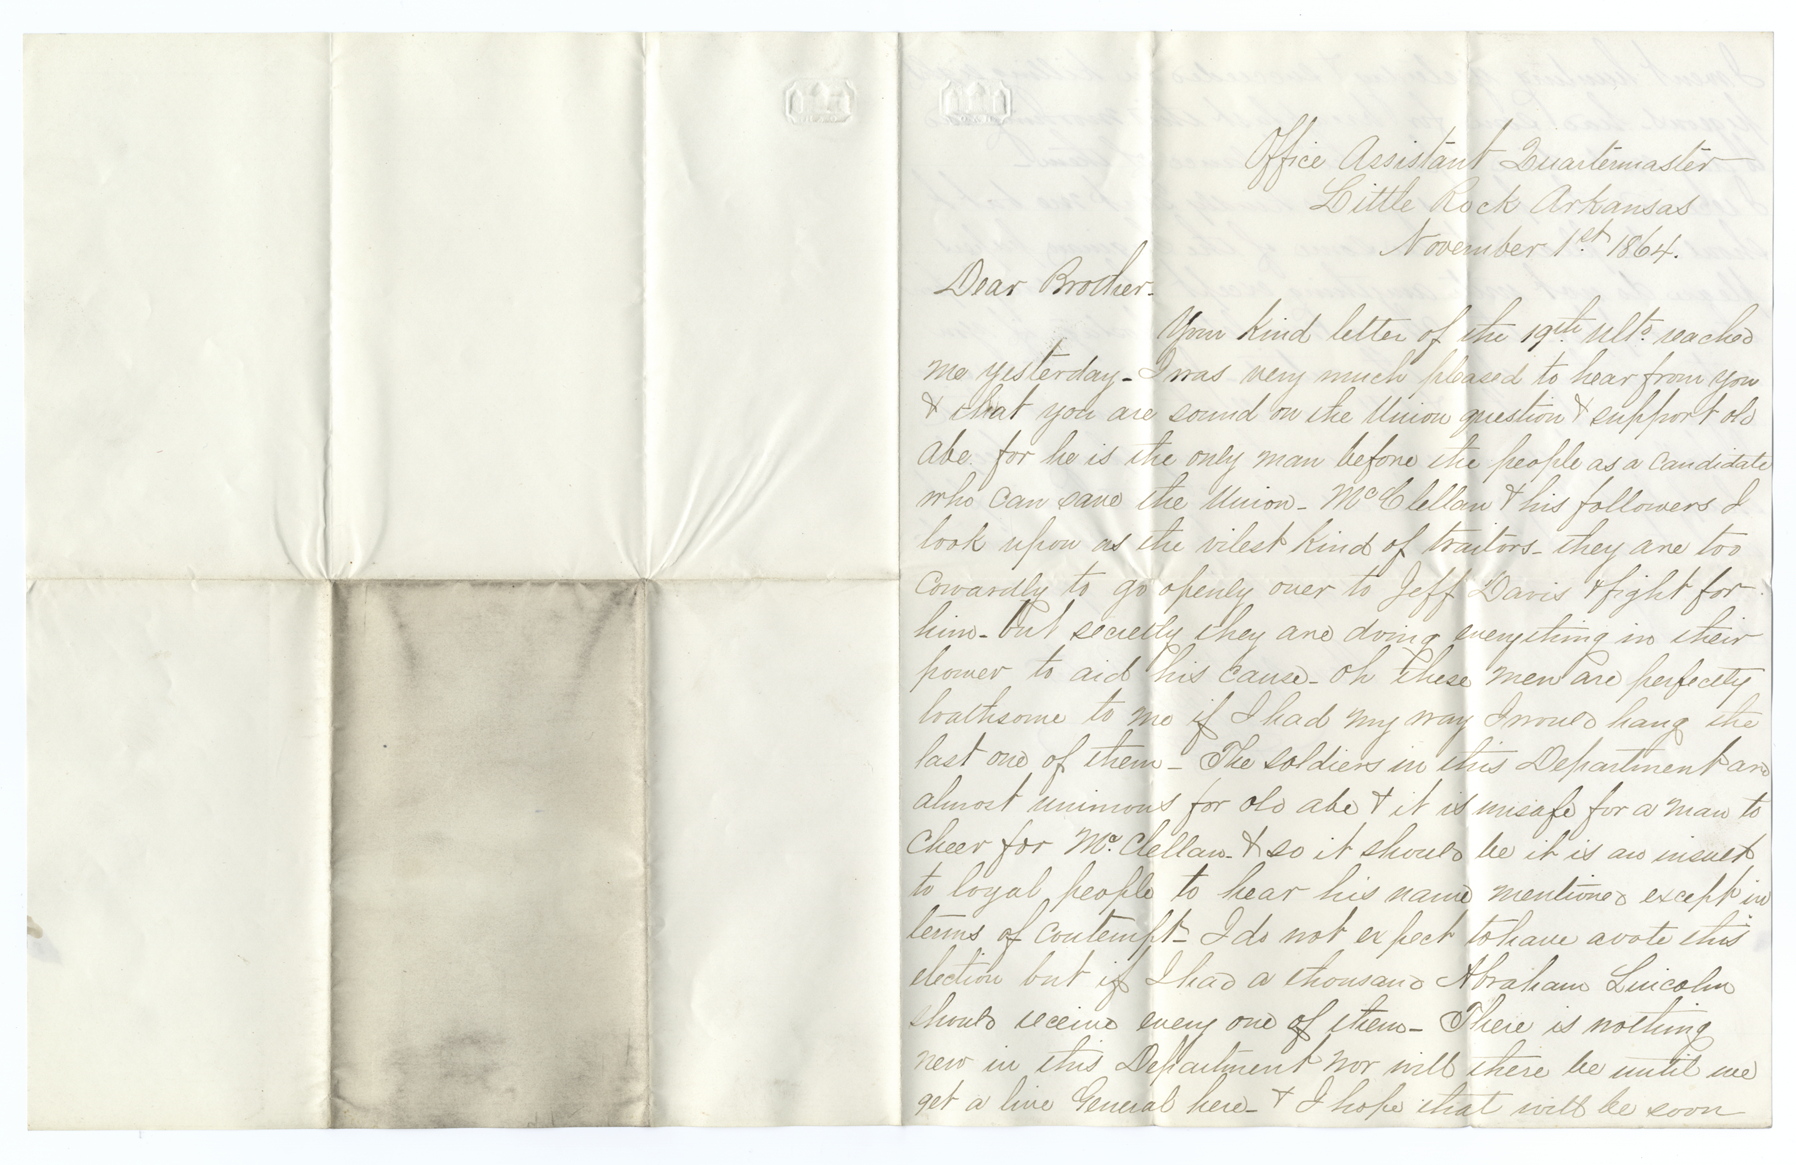 Office Assistant Quartermaster
Little Rock Arkansas
November 1st. 1864.
Dear Brother-
Your kind letter of the 19th. ulto. reached
me yesterday- I was very much pleased to hear from you
& that you are sound on the Union question & support old
abe. for he is the only man before the people as a candidate
who can save the Union- McClellan & his followers I
look upon as the vilest kind of traitors- they are too
cowardly to go openly over to Jeff Davis & fight for
him- but secretly they are doing everything in their
power to aid his cause- oh these men are perfectly
loathsome to me if I had my way I would hang the
last one of them- The soldiers in this Department are
almost unimous for old abe & it is unsafe for a man to
cheer for Mc.Clellan- & so it should be it is an insult
to loyal people to hear his name mentioned except in
terms of contempt- I do not expect to have a vote this
election but if I had a thousand Abraham Lincoln
should receive every one of them- There is nothing
new in this Department nor will there be until we
get a live General here- & I hope that will be soon